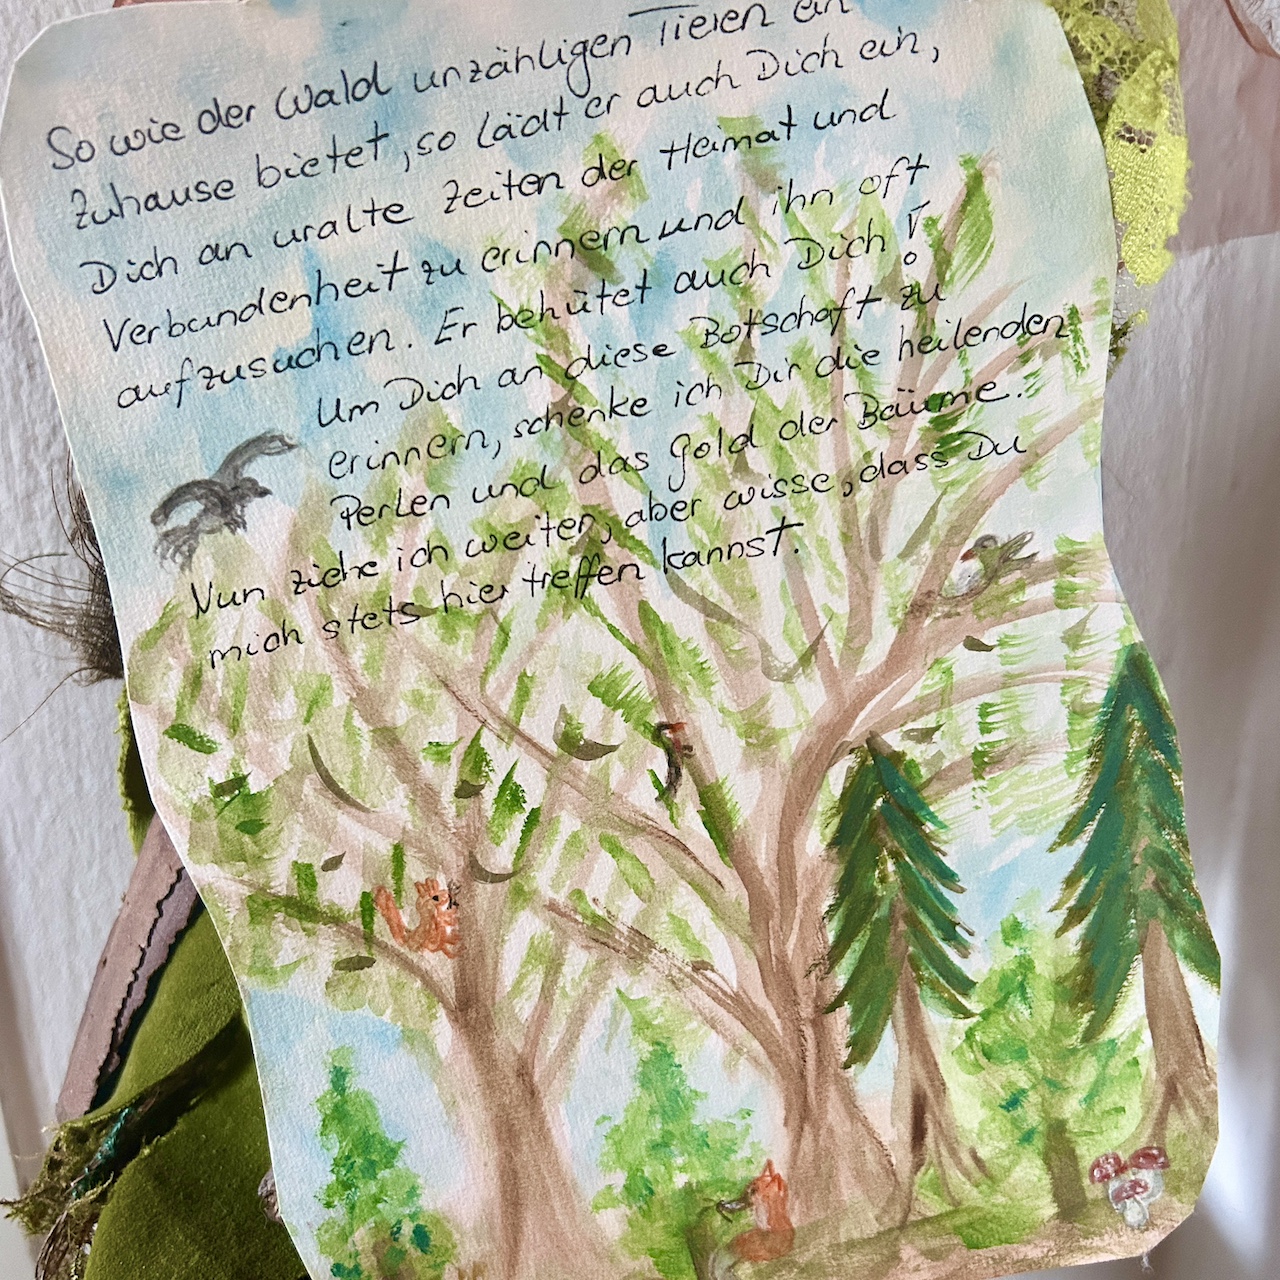 So wie der Wald unzähligen Tieren ein
Zuhause bietet, so lädt er auch Dich ein,
Dich an uralte Zeiten der Heimat und
Verbundenheit zu erinnern und ihn oft
aufzusuchen. Er behütet auch Dich!
Um Dich an diese Botschaft zu
erinnern, schenke ich Dir die heilenden
Perlen und das Gold der Bäume.
Nun ziehe ich weiter, aber wisse, dass Du
mich stets hier treffen kannst.